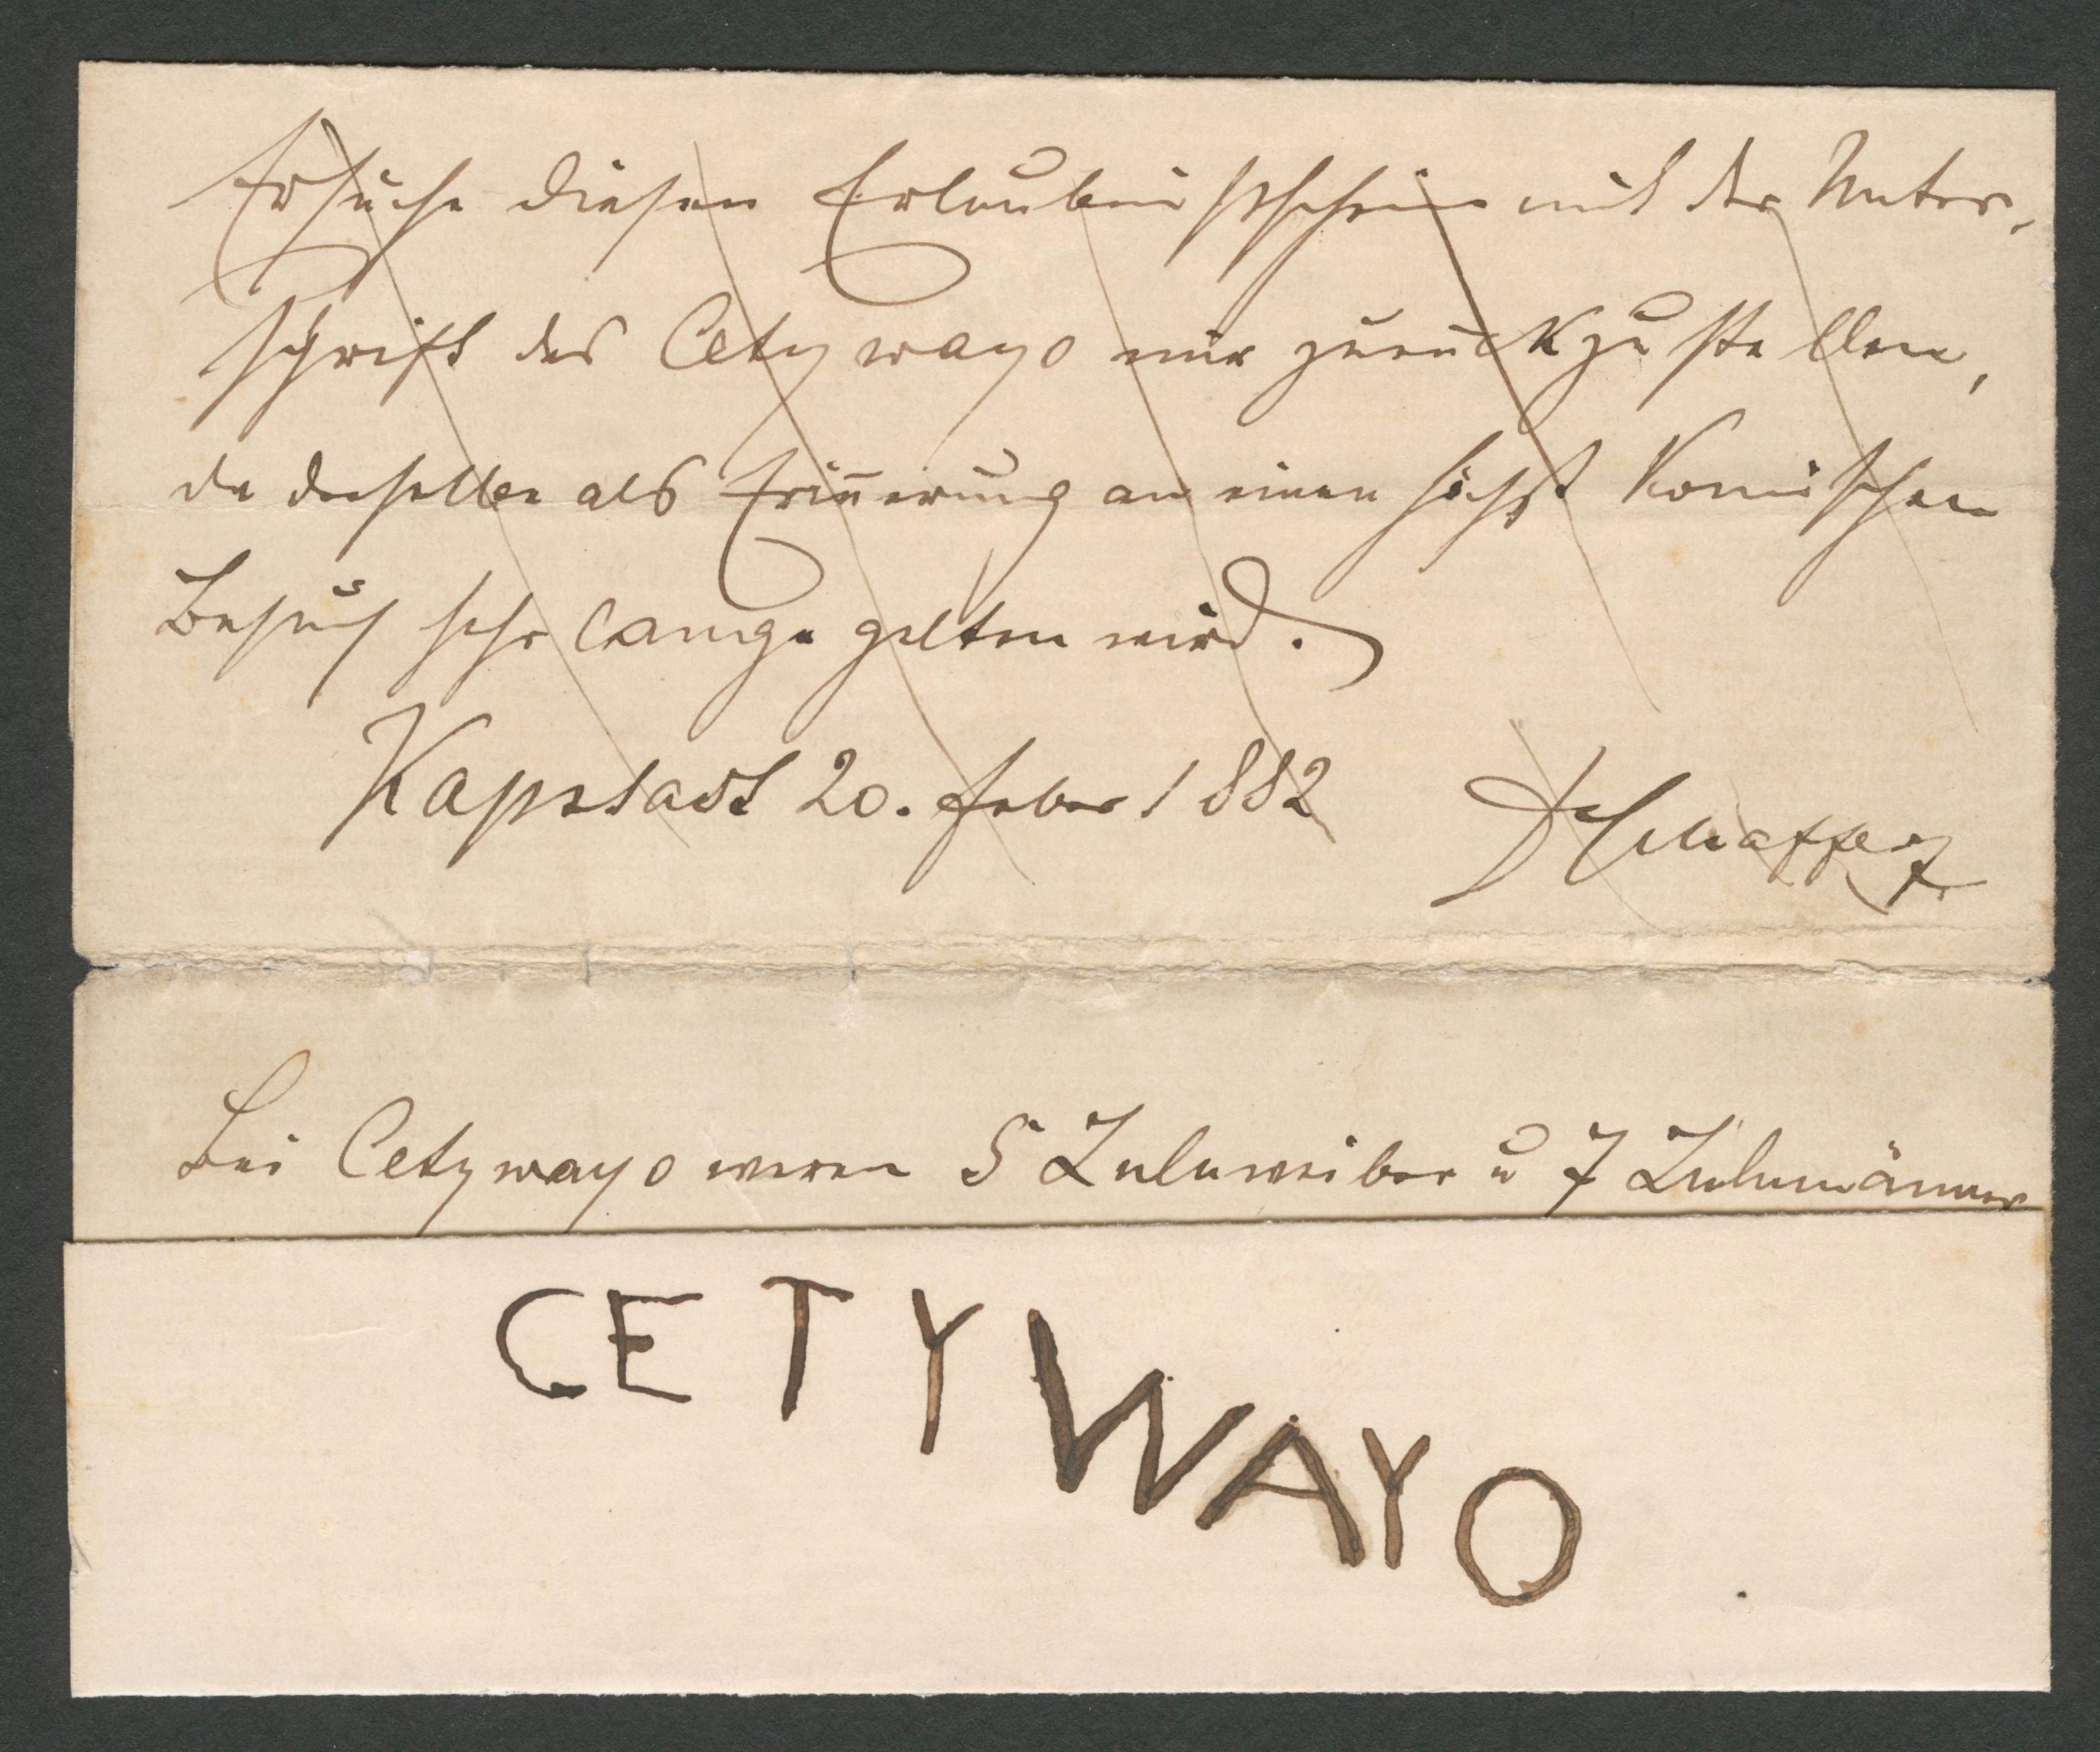 Ersuche diesen Erlaubnißschein mit der Unter-
schrift des Cetywayo mir zurückzustellen,
da derselbe als Erinerung an einen höchst Komischen
Besuch sehr lange gelten wird.
Kapstadt 20. Feber 1882
Bei Cetywayo waren 5 Zuluweiber u 7 Zulumänner
CETYWAYO